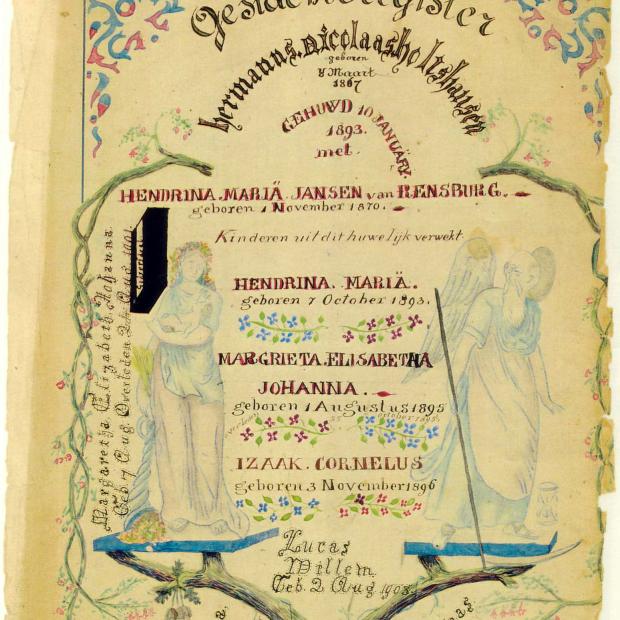 Geslachtsregister
hermanus nicolaas holtshausen
geboren
8 Maart
1867
GEHUWD 10 JANUARY
1893.
met.
HENDRINA. MARIÄ. JANSEN van RENSBURG.
geboren 1 November 1870.
Kinderen uit dit huwelijk verwekt.
HENDRINA. MARIÄ.
geboren 7 October 1893.
MARGRIETA. ELISABETHA
JOHANNA.
geboren 1 Augustus 1895
overleden 25 october 1895.
IZAAK. CORNELUS
geboren 3 November 1896
Margaretha Elizabeth Johanna
Geb. 7 Aug. Overleden 24 Aug 1901.
Lucas
Willem
Geb. 2 Aug 1908.